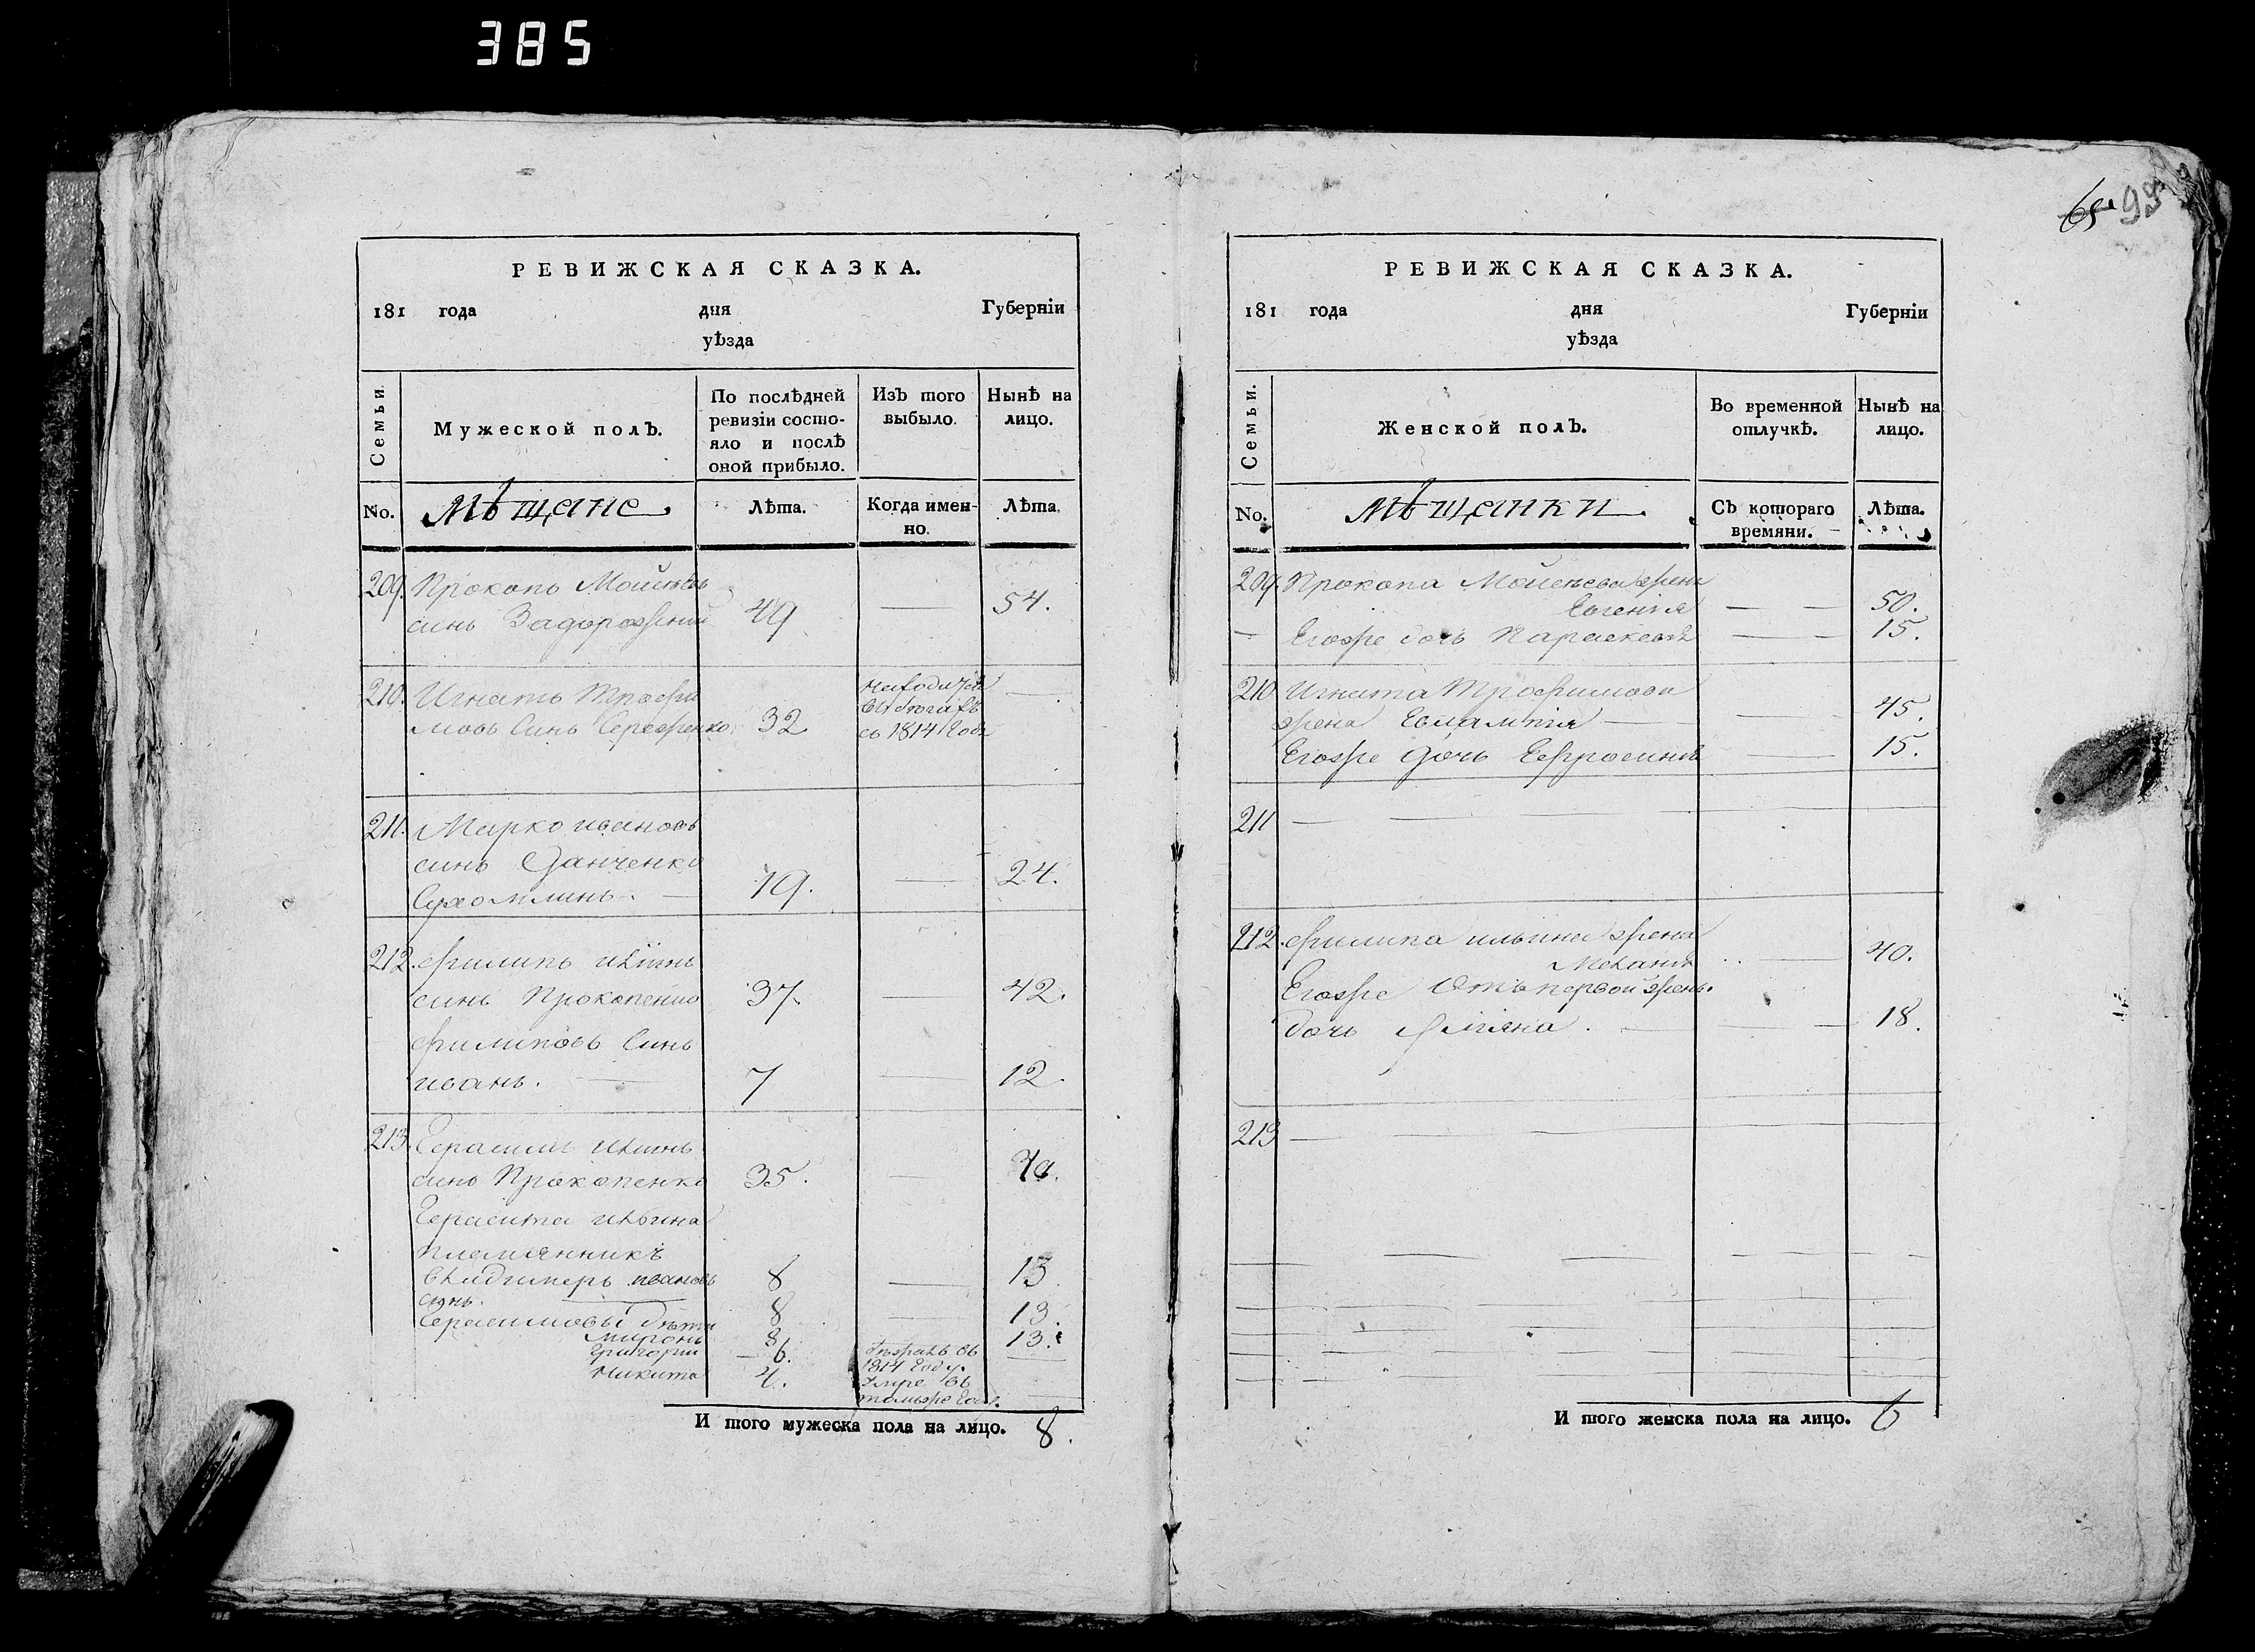 385
65 93
РЕВИЖСКАЯ СКАЗКА.
181 года дня Губерніи
уѣзда
Семьи.
Мужеской полЪ.
По послѣдней ревизіи состо-
яло и послѣ
оной прибыло.
ИзЪ того
выбыло.
НынѢ на
лицо.
No. мѣщане
Лѣта.
Когда имен-
но.
Лѣта.
209. Прокопъ Мойсѣевъ
синъ Задорожний 49 — 54.
210. Игнатъ Трофи
мовъ Синъ Сереженко 32
находится
въ бѣгахъ
съ 1814 Года —
211. Марко ивановъ
синъ Ганченко
Сухомлинъ. — 19. — 24.
212. филипъ илїинъ
синъ Прокопенко 37. — 42.
филиповъ Синъ
иванъ. — 7 — 12.
213. Герасимъ илїинъ
синъ Прокопенко 35. — 40.
Герасима ильина
племянникъ
Владимеръ ивановъ 8 — 13
сынъ. — 8 — 13.
Герасимовы дѣти
миронъ 8 13.
григорий — 6.
въ
1814 Году. —
Никита 4.
умре въ
томъже Годѣ. —
И того мужеска пола на лицо. 8.
РЕВИЖСКАЯ СКАЗКА.
181 года дня Губерніи
уѣзда
Семьи.
Женской полЪ.
Во временной
отлучкѣ.
НынѢ на
лицо.
No. мѣщанки.
СЪ котораго
времяни.
Лѣта.
209. Прокопа Мойсѣева жена
Евгенїя — — 50.
— Егоже дочь Параскевїя — — 15.
210 Игната Трофимова
жена Евлампїя — — 45.
Егоже дочь Ефросинїя — 15.
211 — — — —
212. филипа ильина жена
Меланїя — 40.
Егоже Отъ первой жены.
дочь Улїяна. — — — 18.
213 —
И того женска пола на лицо. 6